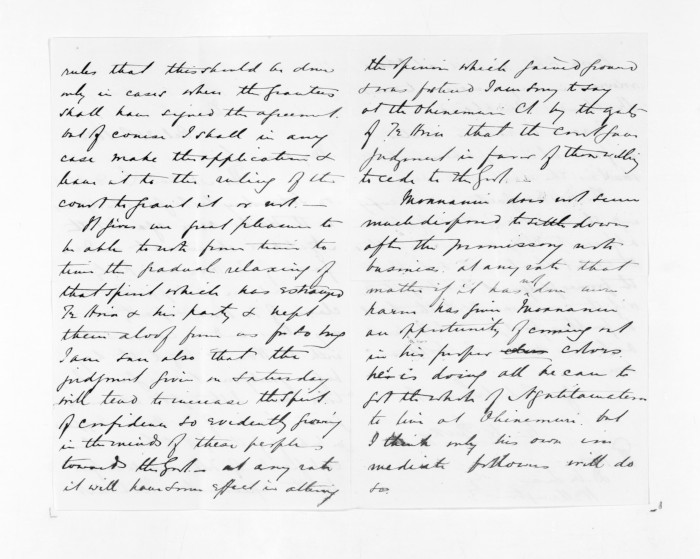 rules that this should be done
only in cases where the grantees
shall have signed the agreement.
but of course I shall in any
case make the application &
leave it to the ruling of the
court to grant it or not. —
It gives me great pleasure to
be able to note from time to
time the gradual relaxing of
that spirit which has estranged
Te Hira & his party & kept
them aloof from us for so long
I am sure also that the
judgment given on Saturday
will tend to increase the spirit
of confidence so evidently growing
in the minds of these people
towards the Govt — at any rate
it will have some effect in altering
the opinion which gained ground
& was I am sorry to say
at the Ohinemuri Ct. by the
of Te Hira that the Court gave
judgment in favor of those willing
to cede to the Govt. —
Moananui does not seem
much disposed to settle down
after the promissory note
business. at any rate that
matter if it has not done more
harm has given Moananui
an opportunity of coming out
in his proper colors
he is doing all he can to
get the whole of Ngatitamatera
to live at Ohinemuri. but
I think only his own im
mediate followers will do
so.